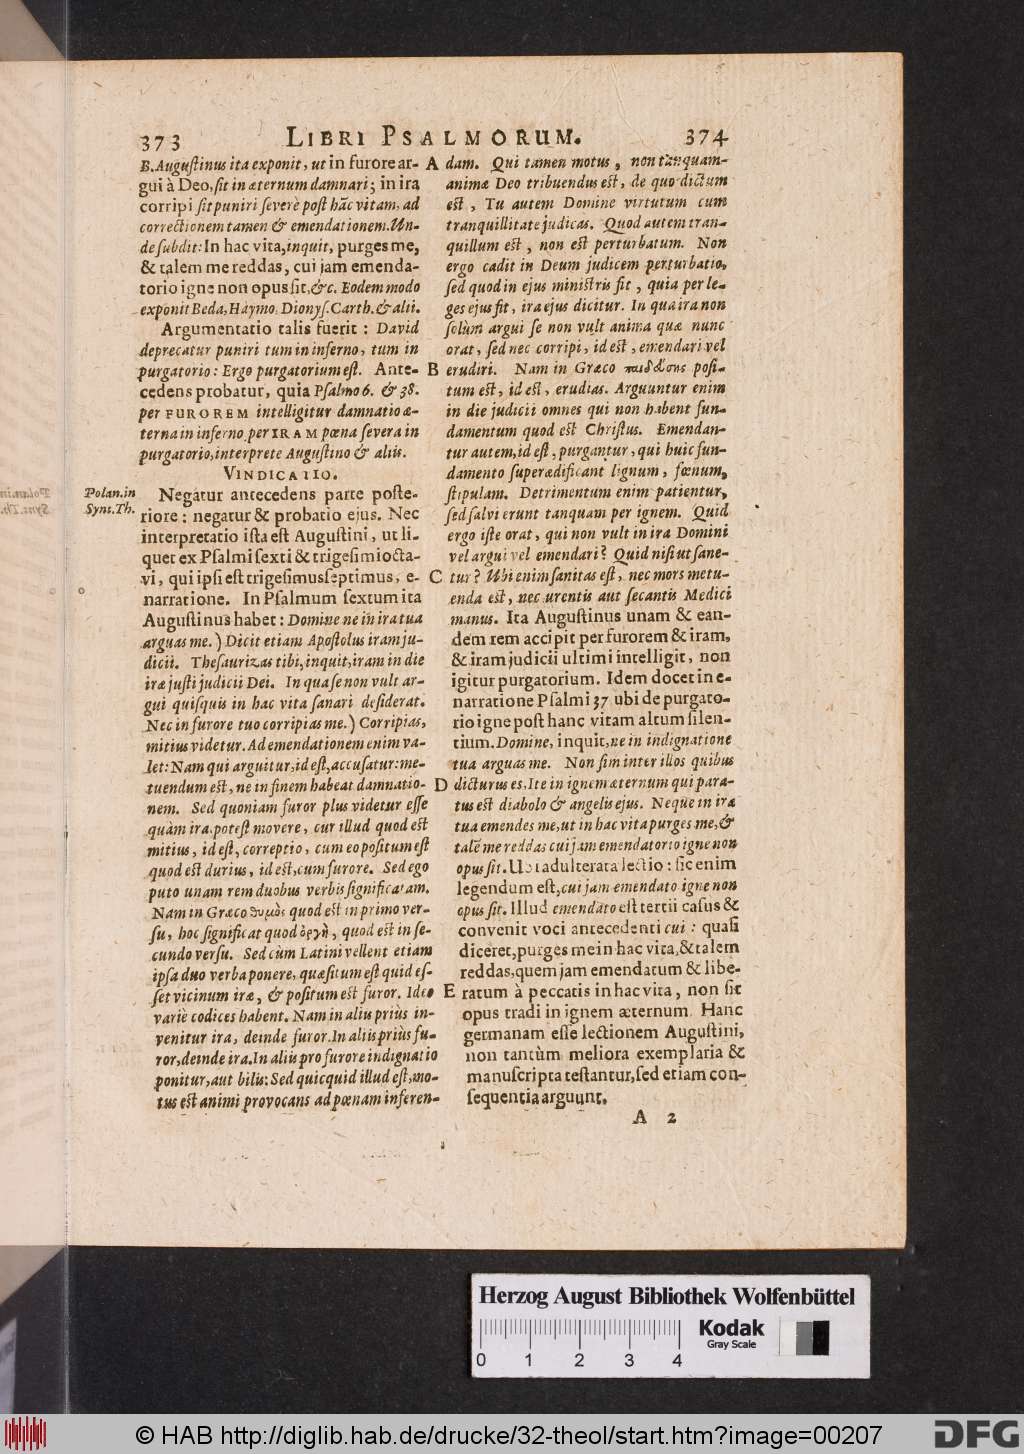 373 LIBRI PSALMORUM. 374
B. Auguſtinus ita exponit, ut in furore ar-
gui à Deo, ſit in æternum damnari; in ira
corripi ſit puniri ſeverè poſt hāc vitam, ad
correctionem tamen & emendationem. Un-
de ſubdit: In hac vita, inquit, purges me,
& talem me reddas, cui jam emenda-
torio igne non opus ſit, &c. Eodem modo
exponit Beda, Haymo, Dionyſ. Carth. & alii.
Argumentatio talis fuerit : David
deprecatur puniri tum in inferno, tum in
purgatorio: Ergo purgatorium eſt. Ante-
cedens probatur, quia Pſalmo 6. & 38.
per FUROREM intelligitur damnatio æ-
terna in inferno, per IRAM pœna ſevera in
purgatorio, interprete Auguſtino & aliis.
VINDICATIO.
Polan. in
Synt. Th.
Negatur antecedens parte poſte-
riore: negatur & probatio ejus. Nec
interpretatio iſta eſt Auguſtini, ut li-
quet ex Pſalmi ſexti & trigeſimi octa-
vi, qui ipſi eſt trigeſimusſeptimus, e-
narratione. In Pſalmum ſextum ita
Auguſtinus habet: Domine ne in ira tua
arguas me.) Dicit etiam Apoſtolus iram ju-
dicii. Theſaurizas tibi, inquit, iram in die
iræ juſti judicii Dei. In qua ſe non vult ar-
gui quiſquis in hac vita ſanari deſiderat.
Nec in furore tuo corripias me.) Corripias,
mitius videtur. Ad emendationem enim va-
let: Nam qui arguitur, id eſt, accuſatur: me-
tuendum eſt, ne in finem habeat damnatio-
nem. Sed quoniam furor plus videtur eſſe
quàm ira, poteſt movere, cur illud quod eſt
mitius, id eſt, correptio, cum eo poſitum eſt
quod eſt durius, id eſt, cum furore. Sed ego
puto unam rem duobus verbis ſignificatam.
Nam in Græco θυμὸς quod eſt in primo ver-
ſu, hoc ſignificat quod ὀργὴ, quod eſt in ſe-
cundo verſu. Sed cùm Latini vellent etiam
ipſa duo verba ponere, quæſitum eſt quid eſ-
ſet vicinum iræ, & poſitum eſt furor. Ideo
variè codices habent. Nam in aliis priùs in-
venitur ira, deinde furor. In aliis priùs fu-
ror, deinde ira. In aliis pro furore indignatio
ponitur, aut bilis: Sed quicquid illud eſt, mo-
tus eſt animi provocans ad pœnam inferen-
A dam. Qui tamen motus, non tanquam
animæ Deo tribuendus eſt, de quo dictum
eſt, Tu autem Domine virtutum cum
tranquillitate judicas. Quod autem tran-
quillum eſt, non eſt perturbatum. Non
ergo cadit in Deum judicem perturbatio,
ſed quod in ejus miniſtris fit, quia per le-
ges ejus fit, ira ejus dicitur. In qua ira non
ſolùm argui ſe non vult anima quæ nunc
orat, ſed nec corripi, id eſt, emendari vel
B erudiri. Nam in Græco παιδεύσῃς poſi-
tum eſt, id eſt, erudias. Arguuntur enim
in die judicii omnes qui non habent fun-
damentum quod eſt Chriſtus. Emendan-
tur autem, id eſt, purgantur, qui huic fun-
damento ſuperædificant lignum, fœnum,
ſtipulam. Detrimentum enim patientur,
ſed ſalvi erunt tanquam per ignem. Quid
ergo iſte orat, qui non vult in ira Domini
vel argui vel emendari? Quid niſi ut ſane-
C tur? Ubi enim ſanitas eſt, nec mors metu-
enda eſt, nec urentis aut ſecantis Medici
manus. Ita Auguſtinus unam & ean-
dem rem accipit per furorem & iram,
& iram judicii ultimi intelligit, non
igitur purgatorium. Idem docet in e-
narratione Pſalmi 37 ubi de purgato-
rio igne poſt hanc vitam altum ſilen-
tium. Domine, inquit, ne in indignatione
tua arguas me. Non ſim inter illos quibus
D dicturus es, Ite in ignem æternum qui para-
tus eſt diabolo & angelis ejus. Neque in ira
tua emendes me, ut in hac vita purges me, &
talē me reddas cui jam emendatorio igne non
opus ſit. Ubi adulterata lectio: ſic enim
legendum eſt, cui jam emendato igne non
opus ſit. Illud emendato eſt tertii caſus &
convenit voci antecedenti cui : quaſi
diceret, purges me in hac vita, & talem
reddas, quem jam emendatum & libe-
E ratum à peccatis in hac vita, non ſit
opus tradi in ignem æternum. Hanc
germanam eſſe lectionem Auguſtini,
non tantùm meliora exemplaria &
manuſcripta teſtantur, ſed etiam con-
ſequentia arguunt.
A 2
Herzog August Bibliothek Wolfenbüttel
0 1 2 3 4
Kodak
Gray Scale
© HAB http://diglib.hab.de/drucke/32-theol/start.htm?image=00207
DFG